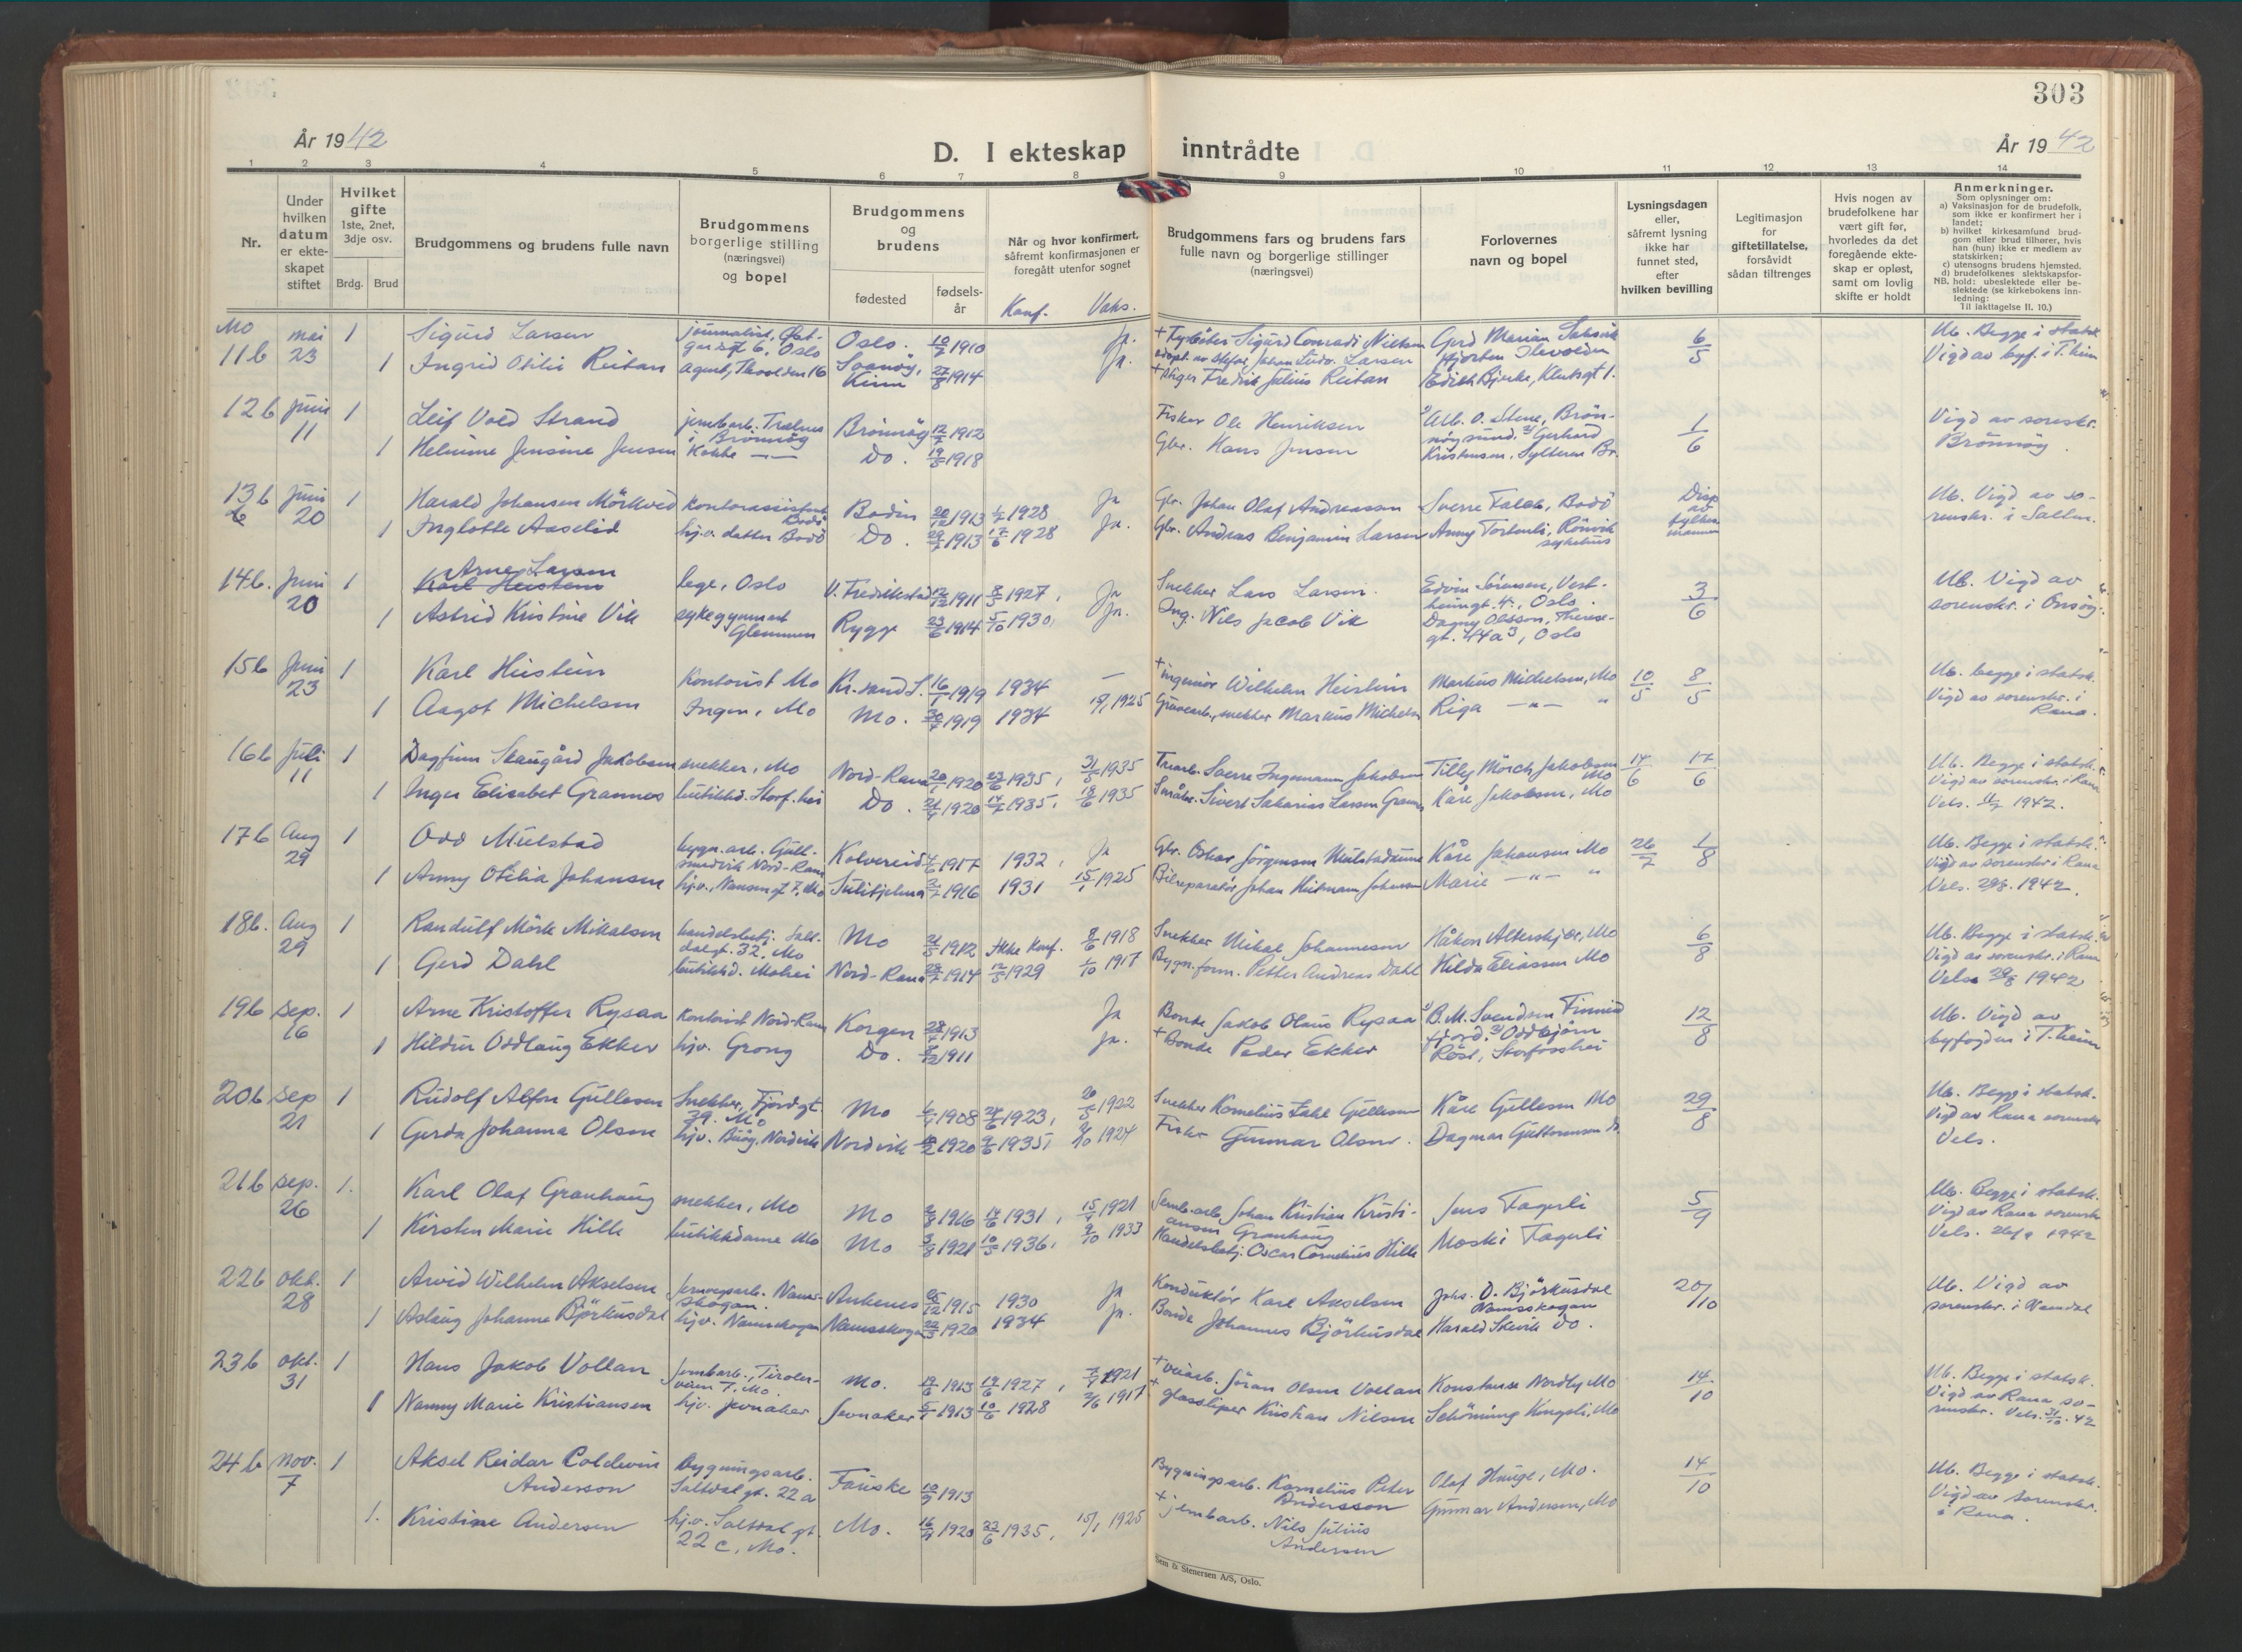 303
År 1942
D. I ekteskap inntrådte
År 1942
1 2 3 4 5 6 7 8 9 10 11 12 13 14
Nr.
Under
hvilken
datum
er ekte-
skapet
stiftet
Hvilket
gifte
1ste, 2net,
3dje osv.
Brdg. Brud
Brudgommens og brudens fulle navn
Brudgommens
borgerlige stilling
(næringsvei)
og bopel
Brudgommens
og
brudens
fødested
fødsels-
år
Når og hvor konfirmert,
såfremt konfirmasjonen er
foregått utenfor sognet
Konf. Vaks.
Brudgommens fars og brudens fars
fulle navn og borgerlige stillinger
(næringsvei)
Forlovernes
navn og bopel
Lysningsdagen
eller,
såfremt lysning
ikke har
funnet sted,
efter
hvilken bevilling
Legitimasjon
for
giftetillatelse,
forsåvidt
sådan tiltrenges
Hvis nogen av
brudefolkene har
vært gift før,
hvorledes da det
foregående ekte-
skap er opløst,
samt om lovlig
skifte er holdt
Anmerkninger.
Som oplysninger om:
a) Vaksinasjon for de brudefolk,
som ikke er konfirmert her i
landet;
b) hvilket kirkesamfund brud-
gom eller brud tilhører, hvis
han (hun) ikke er medlem av
statskirken;
c) utensogns brudens hjemsted.
d) brudefolkenes slektskapsfor-
NB. hold: ubeslektede eller be-
slektede (se kirkebokens inn-
ledning:
Til iakttagelse II. 10.)
Mo
11b mai 23 1 Sigurd Larsen journalist, Oslo Oslo. 10/7 1910 Ja. + Sigurd Conradi Nielsen Gerd Marian 6/5 Ub. Begge i statsk.
1 Ingrid Otilie Reitan 27/8 1914 Ja. Fredrik Julius Reitan Edith Bjerke, Vigd av byf. i T.heim
12b juni 11 1 Leif Vold Strand jernbarb. Brönnöy 12/7 1912 Fisker Ole Henriksen Alb. O. Stene, Brön-
nöysund. Gerhard 1/6 Vigd av sorenskr.
1 Jensine Jensen Kokke Do. 1918 Gbr. Hans Jensen Kristensen, Brönnöy
13b juni 20 1 Harald Johansen Mörkved kontorassistent Bodö Bodin 20/12 1913 1/7 1928 Ja Gbr. Johan Olaf Andreassen Sverre Falch, Bodö Disp. av fylkesmannen Ub. Vigd av so-
renskr. i Salten.
1 Inglotte Aaselid hj.v. datter Bodö Do. 1913 17/6 1928 Ja. Gbr. Andreas Benjamin Larsen Anny Rönvik sykehus
14b. juni 20 1 Arne Larsen lege, Oslo V. Fredrikstad 1911 1927, Ja Snekker Lars Larsen. Edvin Sörensen, Vest-
heimgt. 4, Oslo. 3/6 Ub. Vigd av
1 Astrid Kristine Vik sykegymnast Glemmen Rygge 23/6 1914 5/10 1930, Ja. Ing. Nils Jacob Vik Dagny Olsson, Therese-
gt. 44a3, Oslo sorenskr. i Onsöy.
15b juni 23 1 Karl Heistein Kontorist Mo Kr.sand S. 16/7 1919 1934 — + ingeniör Wilhelm Heistein Martius Michelsen, Mo 10/5 8/5 Ub. begge i statsk.
1 Aagot Michelsen Ingen, Mo Mo. 30/7 1919 1934 15/1 1925 snekker Markus Michelsen Riga —"— " Vigd av sorenskr. i
Rana.
16b juli 11 1 Dagfinn Skaugård Jakobsen snekker, Mo Nord-Rana 1920 1935, 31/5 1935 Trearb. Sverre Ingemann Jakobsen Tilly Mörch Jakobsen Mo 14/6 17/6 Ub. Begge i statsk.
1 Inger Elisabet Grannes butikkd. Storf.hei Do. 1920 14/7 1935, 18/6 1935 Småbr. Sivert Sakarias Larsen Grannes Kåre Jakobsen, Mo Vigd av sorenskr. i Rana
Vels. 11/7 1942.
17b Aug 29 1 Odd Mulstad bygn.arb. Gull-
smedvik Nord-Rana Kolvereid 1917 1932, Ja Gbr. Oskar Jörgensen Mulstadaune Kåre Johansen Mo 26/7 1/8 Ub. Begge i statsk.
1 Anny Otilia Johansen hj.v., Nansengt 7, Mo Sulitjelma 1916 1931 15/1 1925 Bilreparatör Johan Heitmann Johansen Marie —"— " Vigd av sorenskr. i Rana
Vels. 29/8. 1942.
18b. Aug 29 1 Randulf Mörk Mikalsen handelsbetj. Salt-
dalgt. 32, Mo Mo 1912 Ikke konf. 8/6 1918 Snekker Mikal Johannesen Håkon Alterskjær, Mo 6/8 Ub. Begge i statsk.
1 Gerd Dahl butikkd. Mohei Nord-Rana 1914 12/5 1929 1/10 1917 Bygn.form. Petter Andreas Dahl Hilda Eliassen Mo Vigd av sorenskr. i Rana
Vels 29/8 1942
19b sep. 16 1 Arne Kristoffer Rysaa Kontorist Nord-Rana Korgen 28/7 1913 Ja Bonde Jakob Olaus Rysaa B. M. Svendsen Finneid-
fjord. Oddbjörn 12/8 Ub. Vigd av
1 Hildur Oddlaug Ekker hjv. Grong Do. 1911 Ja. + Bonde Peder Ekker Röst, Storfosshei byfogden i T.heim
20b sep 21 1 Rudolf Alfon Gullesen Snekker, Fjordgt.
39, Mo Mo 1908 1923, 1922 Snekker Kornelius Zahl Gullesen Kåre Gullesen Mo 29/8 Ub. Begge i statsk.
1 Gerda Johanna Olsen hjv. Nordvik Nordvik 1920 1935, 1924 Fisker Gunnar Olsen. Dagmar Guttormsen do. Vigd av Rana sorenskr
Vels.
21b sep. 26 1. Karl Olaf Granhaug snekker, Mo Mo 1916 14/6 1931, 15/9 1921 Jernb.arb Johan Kristian Kristi-
ansen Granhaug Jens Fagerli 5/9 Ub. Begge i statsk.
1 Kirsten Marie Hille butikkdame Mo Mo 3/8 1921 10/5 1936, 9/10 1933 Handelsbetj. Oscar Cornelius Hille Moski Fagerli Vigd av Rana sorenskr
Vels. 26/9 1942
22b okt. 28 1 Arvid Wilhelm Akselsen Jernvegsarb. Nams-
skogan. Ankenes 1915 1930 Ja Konduktör Karl Akselsen Johs. O. Björhusdal
Namsskogan 20/10 Ub. Vigd av
1 Aslaug Johanne Björhusdal hjv. Namsskogan Namsskogan 1920 1934 Ja. Bonde Johannes Björhusdal Harald Skevik Do. sorenskr. i Namdal
23b okt. 31 1 Hans Jakob Vollan Jernbarb., Tiroler-
veien 7, Mo. Mo. 19/6 1913 19/6 1927, 1921 + veiarb. Jöran Olsen Vollan Konstanse Nordby Mo 14/10 Ub. Begge i statsk.
1 Nanny Marie Kristiansen hjv. Jevnaker Jevnaker 1913 10/6 1928 2/6 1917 + glassliper Kristian Nilsen Schöning Kongsli, Mo Vigd av Rana so-
renskr. Vels. 31/10. 42
24b nov. 7 1 Aksel Reidar Coldevin
Anderson Bygningsarb.
Saltdalgt. 22 a Fauske 10/9 1913 Bygningsarb. Kornelius Peter
Andersson Olaf Hauge, Mo. 14/10 Ub. Begge i statsk.
1. Kristine Andersen hj.v. Saltdalgt.
22 c, Mo. Mo. 16/9 1920 23/6 1935, 15/1 1925 + jernbarb. Nils Julius
Andersen Gunnar Andersen, Mo Vigd av sorenskr.
i Rana.
Sem & Stenersen A/S, Oslo.